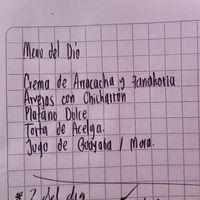 Menu del Dia
Crema de Aracacha y Zanahoria
Arvejas con Chicharron
Platano Dulce
Torta de Acelga.
Jugo de Guayaba / Mora.
del dia